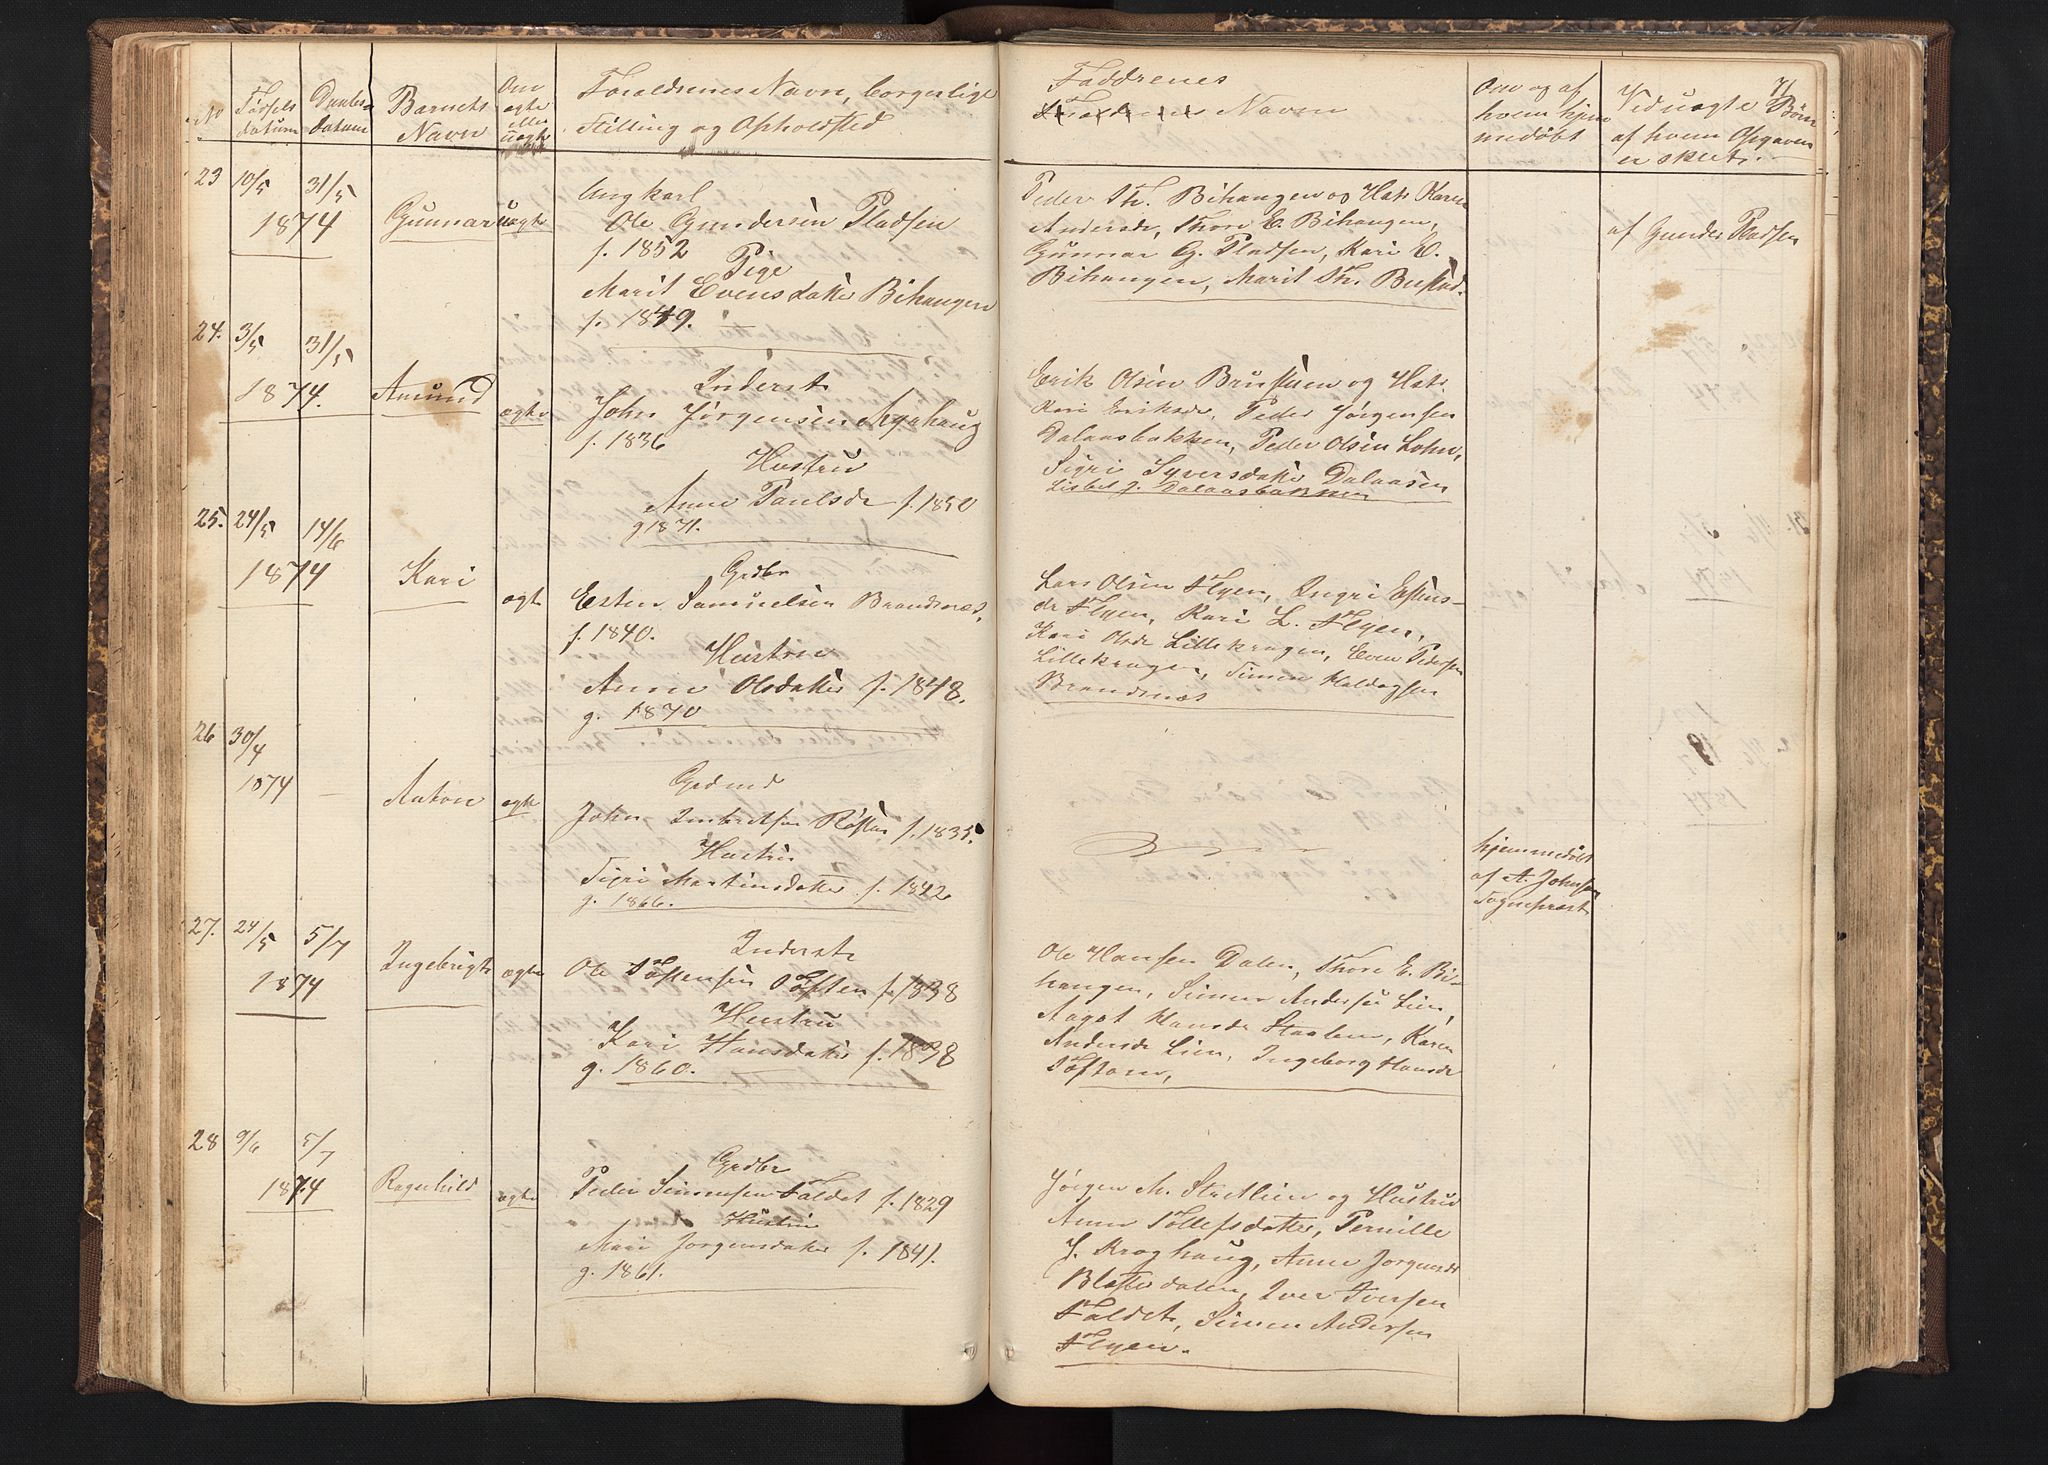 71
No
Fødsels
datum
Daabs-
datum
Barnets
Navn
Om
ægte
eller
uægte
Forældrenes Navn, borgerlige
Stilling og Opholdsted
Faddrenes
Navn
Om og af
hvem hjem
medøbt
Ved uægte Børn
af hvem Opgaven
er skeet.
23 10/5 31/5
1874 Gunnar uægte
Ungkarl
Ole Gundersen Pladsen
f. 1852
Pige
Marit Evensdatter Bihangen
f. 1849.
Peder Th. Bihangen og Hst. Karen
Andersdr, Thore E. Bihangen,
Gunnar G. Pladsen, Kari E.
Bihangen, Marit Th. Bustad.
af Gunder Pladsen
24. 3/5 31/5
1874. Amund ægte
Inderst
John Jørgensen Myrhaug
f. 1836
Hustru
Anne Paulsdr f. 1850
g 1871.
Erik Olsen Brustuen og Hst.
Kari Eriksdr, Peder Jørgensen
Dalaasbakken, Peder Olsen Lohn,
Sigri Syversdatter Dalaasen
Lisbet J. Dalaasbakken
25. 24/5 14/6
1874 Kari ægte
Grdbr
Esten Samuelsen Brandnæs,
f. 1840.
Hustru
Anne Olsdatter f. 1848.
g. 1870
Lars Olsen Flyen, Ingri Estens-
dr Flyen, Kari L. Flyen,
Kari Olsdr Lillekrogen, Even Pedersen
Lillekrogen, Simen Haldogsen
Brandnæs
26 30/4
1874 — Anton ægte
Grdmd
John Imbretsen Røsten f. 1835.
Hustru
Sigri Martinsdatter f. 1842
g. 1866.
hjemmedøbt
af A. Johnsen
Sognepræst
27. 24/5 5/7
1874 Ingebrigt ægte
Inderst
Ole Toftensen Toften f. 1838
Hustru
Kari Hansdatter f. 1838
g. 1860.
Ole Hansen Dalen, Thore E. Bi-
hangen, Simen Andersen Lien,
Aagot Hansdr Staalen, Karen
Andersdr Lien, Ingeborg Hansdr
Toftom,
28 9/6 5/7
1874 Ragnhild ægte
Grdbr
Peder Simensen Faldet f. 1829
Hustru
Mari Jørgensdatter f. 1841.
g. 1861.
Jørgen M. Stretlien og Hustru
Anne Tollefsdatter, Pernille
J. Kroghaug, Anne Jørgensdr
Blæsterdalen, Iver Iversen
Faldet, Simen Andersen
Flyen.